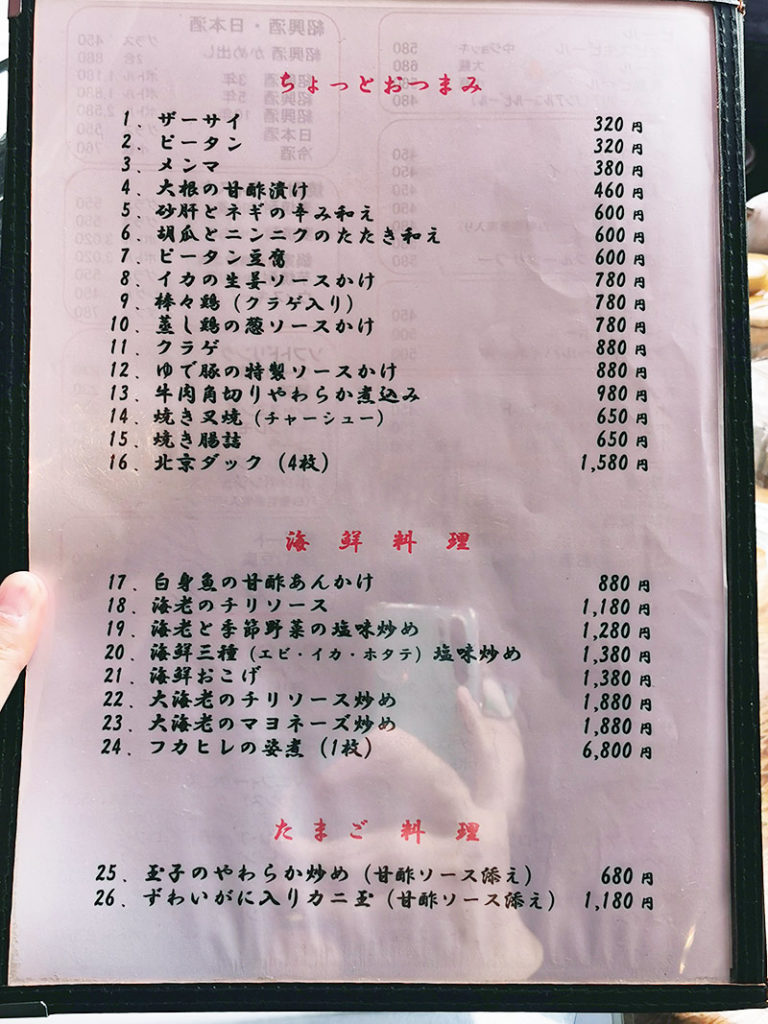 ちょっとおつまみ
1. ザーサイ 320円
2. ピータン 320円
3. メンマ 380円
4. 大根の甘酢漬け 460円
5. 砂肝とネギの辛み和え 600円
6. 胡瓜とニンニクのたたき和え 600円
7. ピータン豆腐 600円
8. イカの生姜ソースかけ 780円
9. 棒々鶏(クラゲ入り) 780円
10. 蒸し鶏の葱ソースかけ 780円
11. クラゲ 880円
12. ゆで豚の特製ソースかけ 880円
13. 牛肉角切りやわらか煮込み 980円
14. 焼き叉焼(チャーシュー) 650円
15. 焼き腸詰 650円
16. 北京ダック(4枚) 1,580円
海鮮料理
17. 白身魚の甘酢あんかけ 880円
18. 海老のチリソース 1,180円
19. 海老と季節野菜の塩味炒め 1,280円
20. 海鮮三種(エビ・イカ・ホタテ)塩味炒め 1,380円
21. 海鮮おこげ 1,380円
22. 大海老のチリソース炒め 1,880円
23. 大海老のマヨネーズ炒め 1,880円
24. フカヒレの姿煮(1枚) 6,800円
たまご料理
25. 玉子のやわらか炒め(甘酢ソース添え) 680円
26. ずわいがに入りカニ玉(甘酢ソース添え) 1,180円